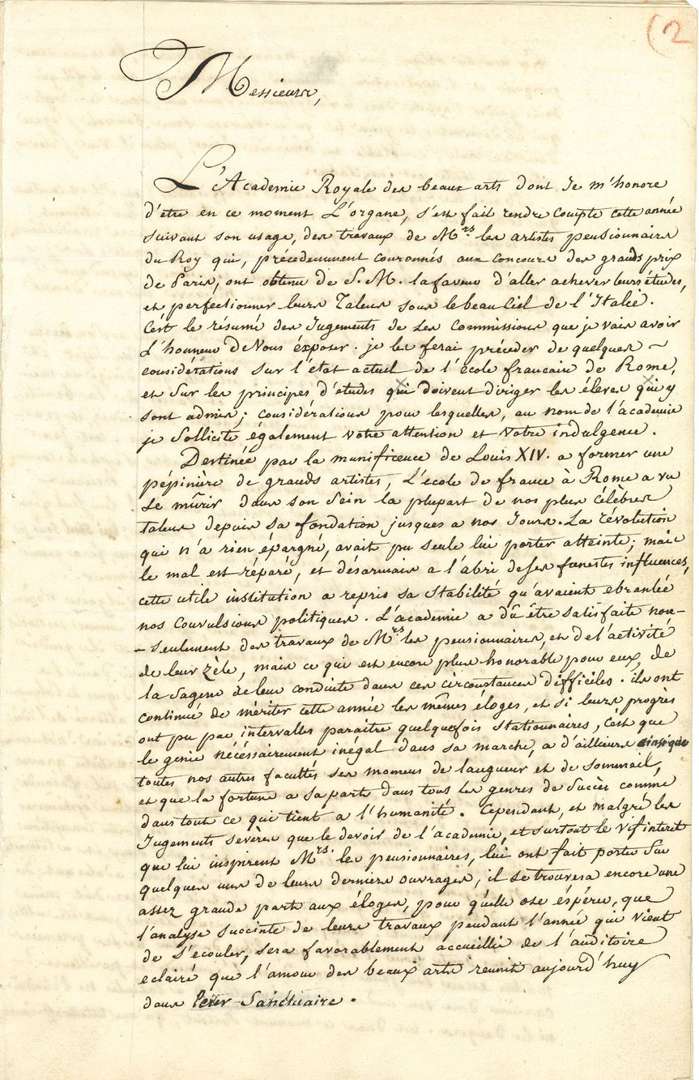 (2
Messieurs,
L'Academie Royale des beaux arts dont Je m'honore
d'etre en ce moment L'organe, s'est fait rendre compte cette année
suivant son usage, des travaux de Mrs les artistes pensionnaires
du Roy qui, précédemment couronnés aux concours des grands prix
de Paris, ont obtenu de S. M. la faveur d'aller achever leurs études,
et perfectionner leurs Talens sous le beau Ciel de l'Italie.
C'est le résumé des Jugements de ses Commissions que je vais avoir
L'honneur de Vous éxposer. je les ferai précéder de quelques ~
considérations sur l'état actuel de l'école francaise de Rome,
et Sur les principes d'études qui doivent diriger les éleves qui y
sont admis; considérations pour lesquelles, au nom de l'academie
je Sollicite également votre attention et Votre indulgence.
Destinée par la munificence de Louis XIV. a former une
pépinière de grands artistes, L'école de france à Rome a vu
se mûrir dans son Sein la plupart de nos plus célèbres
talens depuis sa fondation jusques a nos Jours. La révolution
qui n'a rien épargné, avait pu seule lui porter atteinte; mais
le mal est réparé, et désormais a l'abri de ses funestes influences,
cette utile institution a repris sa stabilité qu'avaient ebranlée
nos Convulsions politiques. L'academie a dû être satisfaite non-
- seulement des travaux de Mrs les pensionnaires, et de l'activité
de leur zèle, mais ce qui est encore plus honorable pour eux, de
la Sagesse de leur conduite dans ces circonstances difficiles. ils ont
continué de mériter cette année les mêmes éloges, et si leurs progrès
ont pu par intervalles paraitre quelquefois stationnaires, c'est que
le génie nécéssairement inégal dans sa marche, a d'ailleurs ainsi que
toutes nos autres facultés ses momens de langueur et de sommeil,
et que la fortune a sa part dans tous les genres de Succès comme
dans tout ce qui tient a l'humanité. Cependant, et malgré les
Jugements sevères que le devoir de l'academie, et surtout le vif interêt
que lui inspirent Mrs. les pensionnaires, lui ont fait porter Sur
quelques uns de leurs derniers ouvrages, il se trouvera encore une
assez grande part aux éloges, pour qu'elle ose éspérer, que
l'analyse succinte de leurs travaux pendant l'année qui vient
de s'écouler, sera favorablement accueillie de l'auditoire
eclairé que l'amour des beaux arts reunit aujourd'huy
dans Sanctuaire.